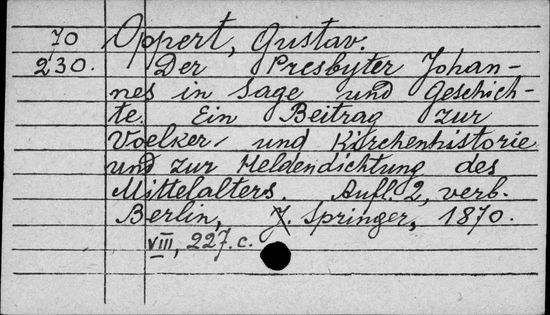 70 Oppert, Gustav.
230. Der Presbyter Johan-
nes in Sage und Geschich-
te. Ein Beitrag zur
Voelker- und Kirchenhistorie
und zur Heldendichtung des
Mittelalters. Aufl. 2, verb.
Berlin, J. Springer, 1870.
VIII, 227.c.